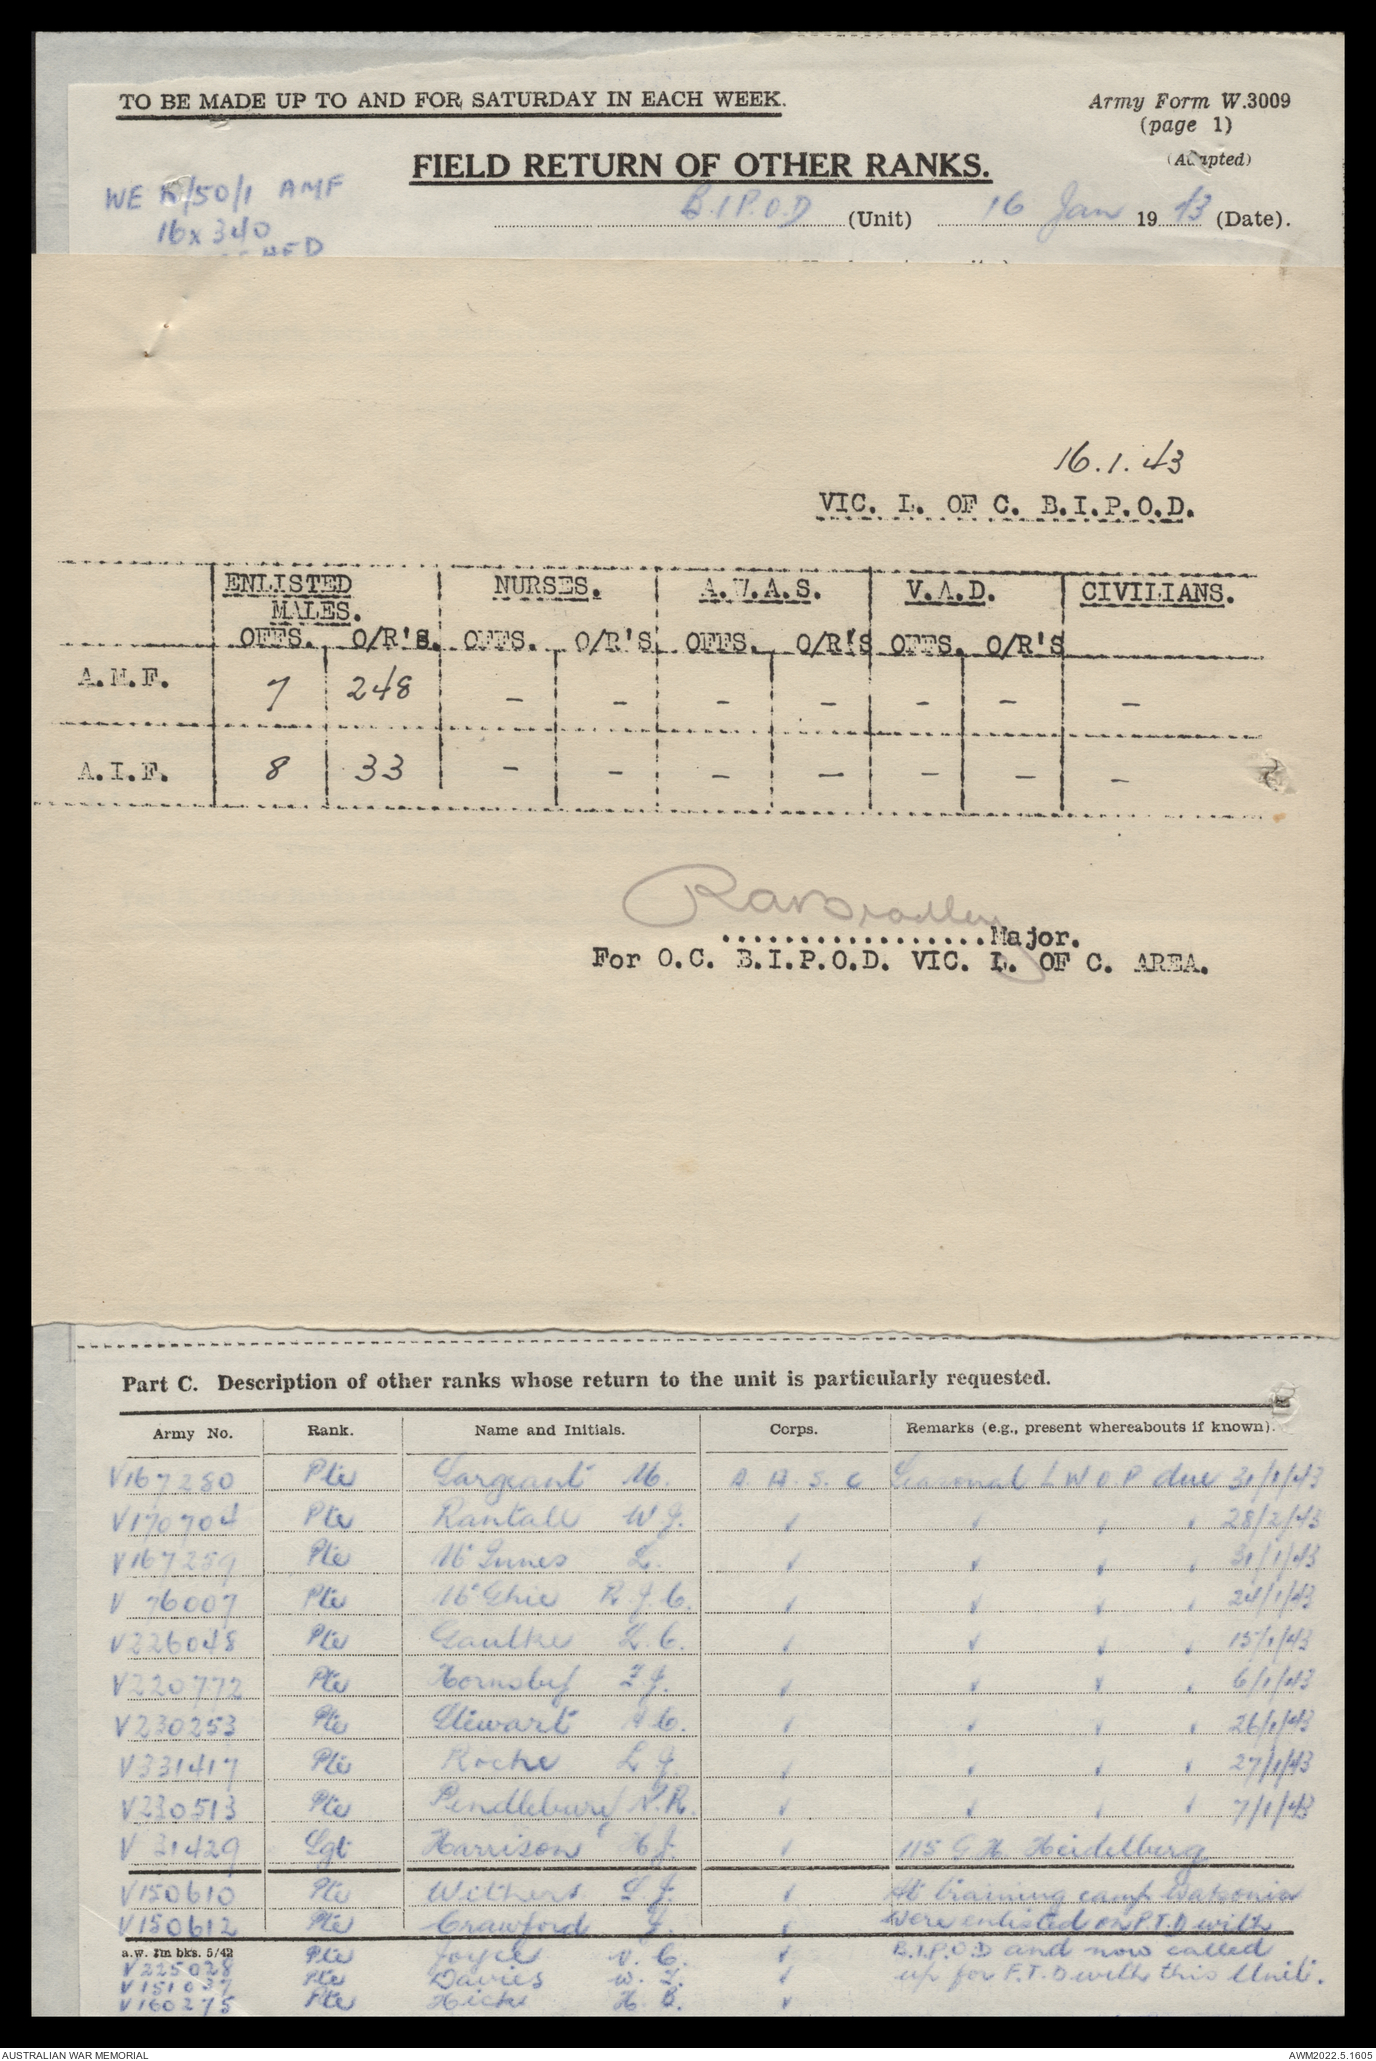 TO BE MADE UP TO AND FOR SATURDAY IN EACH WEEK.
Army Form W.3009
(page 1)
(Adapted)
FIELD RETURN OF OTHER RANKS.
WE /50/1 AMF
16 x 340
B.I.P.O.D (Unit) 16 Jan 1943 (Date).
16.1.43
VIC. L. OF C. B.I.P.O.D.
ENLISTED MALES. NURSES. A.W.A.S. V.A.D. CIVILIANS.
OFFS. O/R's. OFFS. O/R'S OFFS. O/R'S OFFS. O/R'S
A.M.F. 7 248 - - - - - - -
A.I.F. 8 33 - - - - - - -
..................Major.
For O.C. B.I.P.O.D. VIC. L. OF C. AREA.
Part C. Description of other ranks whose return to the unit is particularly requested.
Army No. Rank. Name and Initials. Corps. Remarks (e.g., present whereabouts if known).
V167280 Pte Sargeant M. A.A.S.C Seasonal L W O P due 31/1/43
V170704 Pte Rantall W J. ✓ ✓ ✓ ✓ 28/2/43
V167259 Pte McInnes L. ✓ ✓ ✓ ✓ 31/1/43
V 76007 Pte McGhie R.J.C. ✓ ✓ ✓ ✓ 24/1/43
V226048 Pte Gaulke L.C. ✓ ✓ ✓ ✓ 15/1/43
V220772 Pte Hornsby J. ✓ ✓ ✓ ✓ 6/1/43
V230253 Pte Stewart C. ✓ ✓ ✓ ✓ 26/1/43
V331417 Pte Roche L J. ✓ ✓ ✓ ✓ 27/1/43
V230513 Pte Pendlebury R. ✓ ✓ ✓ ✓ 7/1/43
V 31429 Sgt Harrison H J. ✓ 115 G.H. Heidelberg
V150610 Pte Withers L J. ✓ At training camp Watsonia
V150612 Pte Crawford J. ✓ were enlisted on P.T.D with
a.w. 1m bks. 5/42
V225028 Pte Joyce V. C. ✓ B.I.P.O.D and now called
V151037 Pte Davies W. ✓ up for F.T.D with this Unit.
V160275 Pte Hick H. B. ✓
AUSTRALIAN WAR MEMORIAL
AWM2022.5.1605